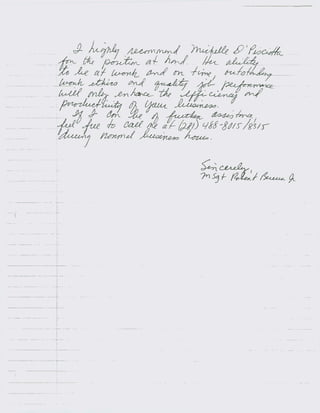 I highly recommend Michelle D'Pisciotta
for the position at hand. Her ability
to be at work and on time, outstanding
work ethics and quality job performance
will only enhance the efficiency and
productivity of your business.
If I can be of further assistance,
feel free to call me at (201) 485-8015/8915
during normal business hours.
Sincerely,
MSgt Robert